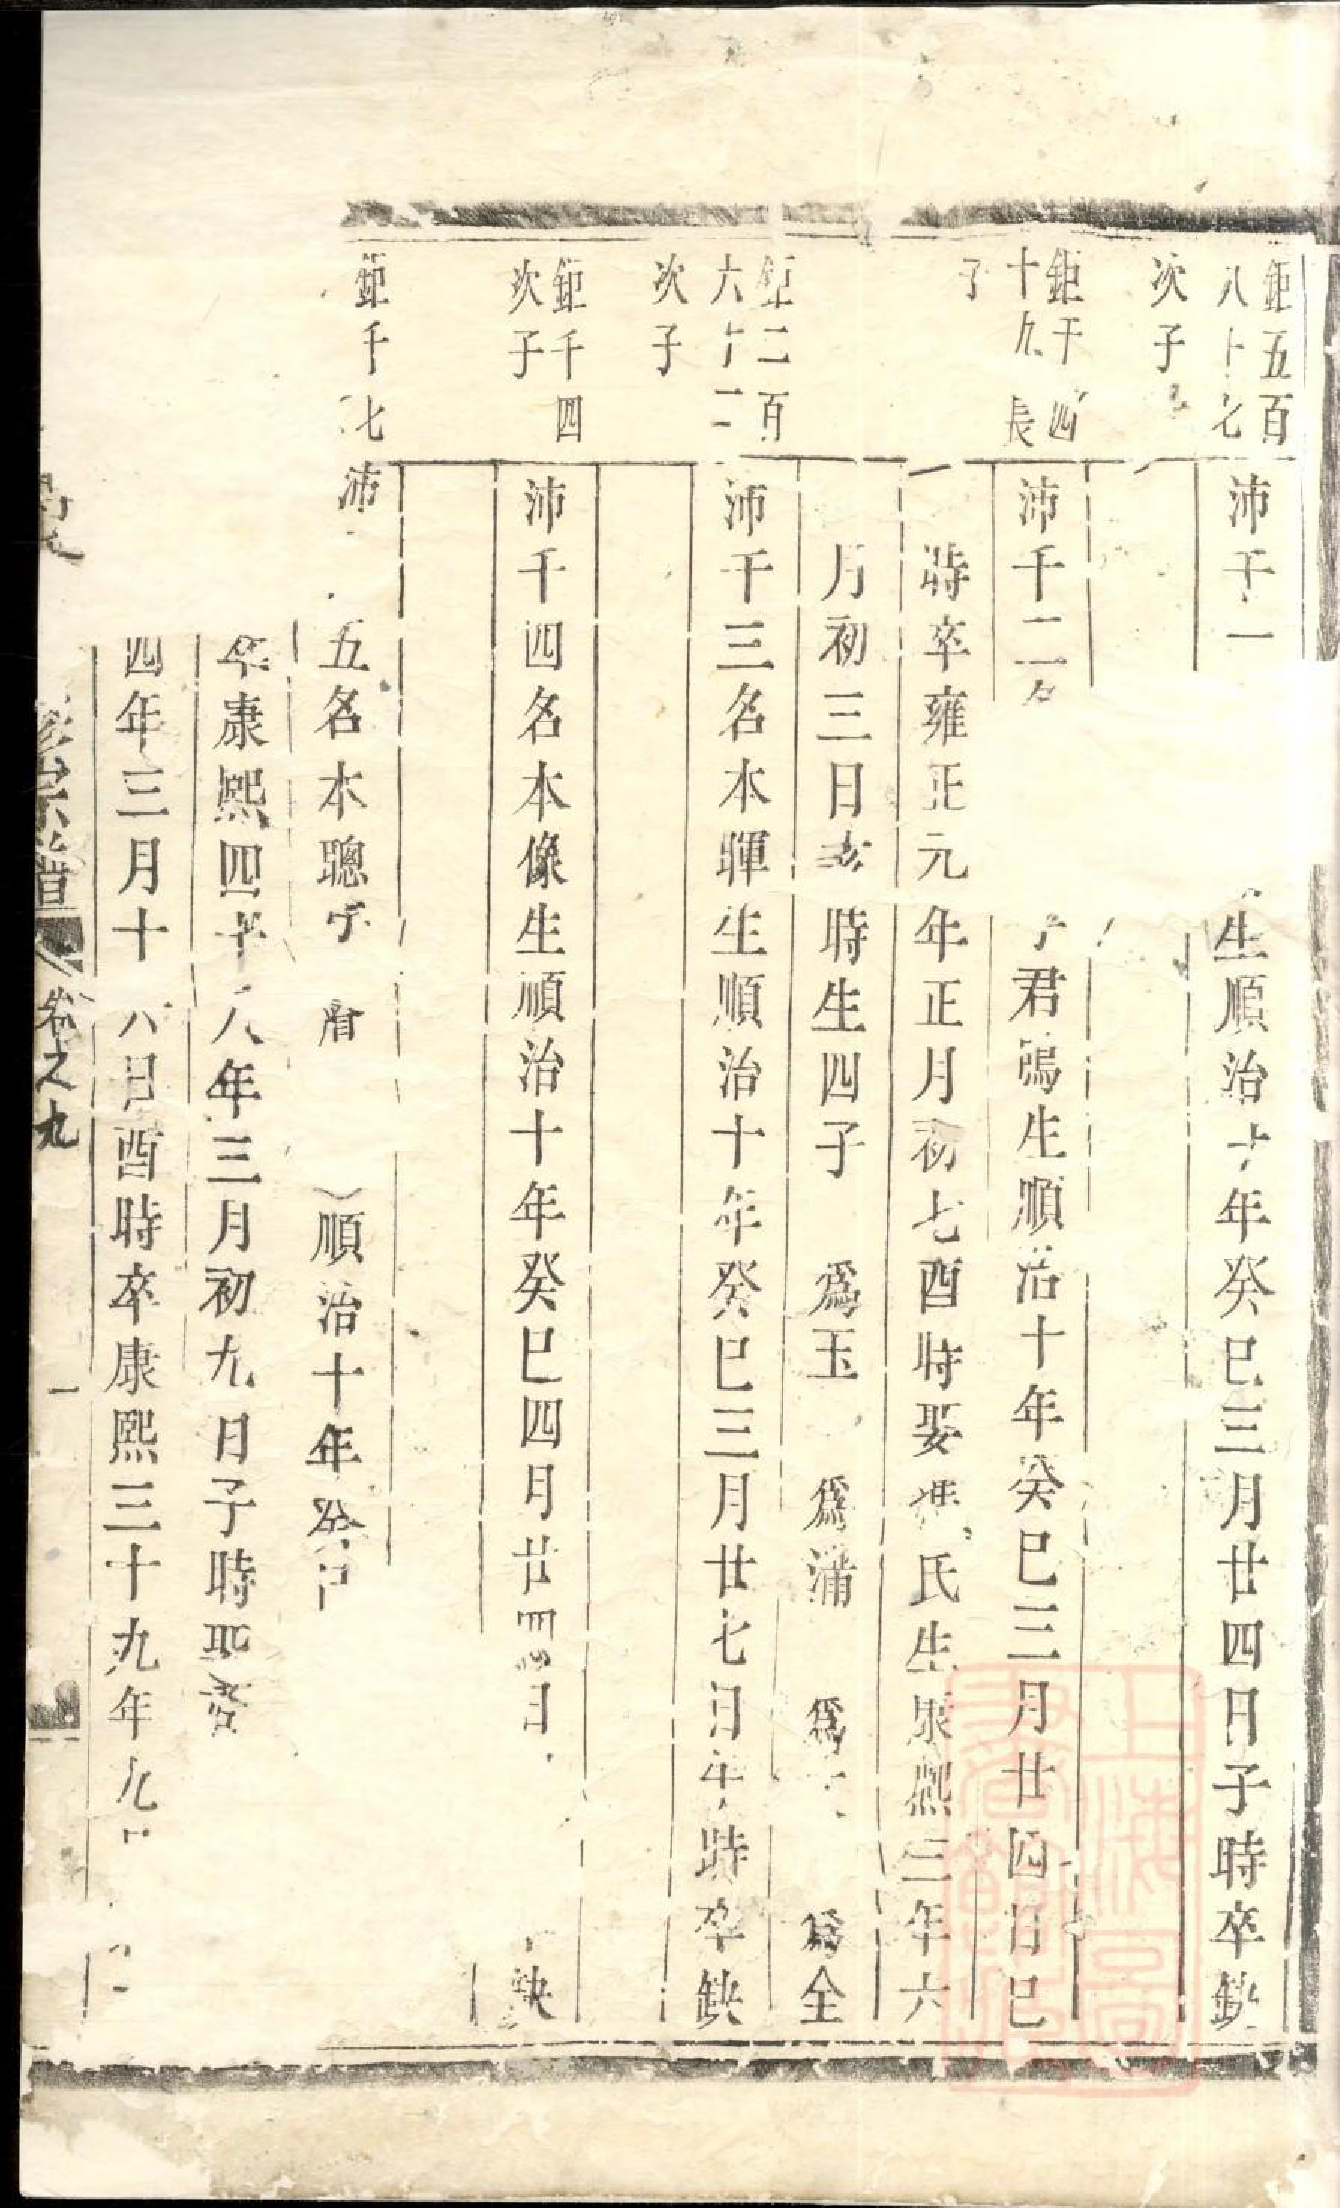 鉅五百
八十七
次子
沛千一
生順治十年癸巳三月廿四日子時卒缺
鉅千四
十九長
子
沛千二名
字君鴻生順治十年癸巳三月廿四日巳
時卒雍正元年正月初七酉時娶 氏生康熙三年六
月初三日亥時生四子 爲玉 爲蒲 爲 爲全
鉅二百
六十二
次子
沛千三名本暉生順治十年癸巳三月廿七日午時卒缺
鉅千四
次子
沛千四名本像生順治十年癸巳四月廿四日 缺
鉅千七
沛 五名本聰字 順治十年癸巳
卒康熙四十八年三月初九日子時配
四年三月十八日酉時卒康熙三十九年九
宗譜
卷之九
一
上海圖書館藏